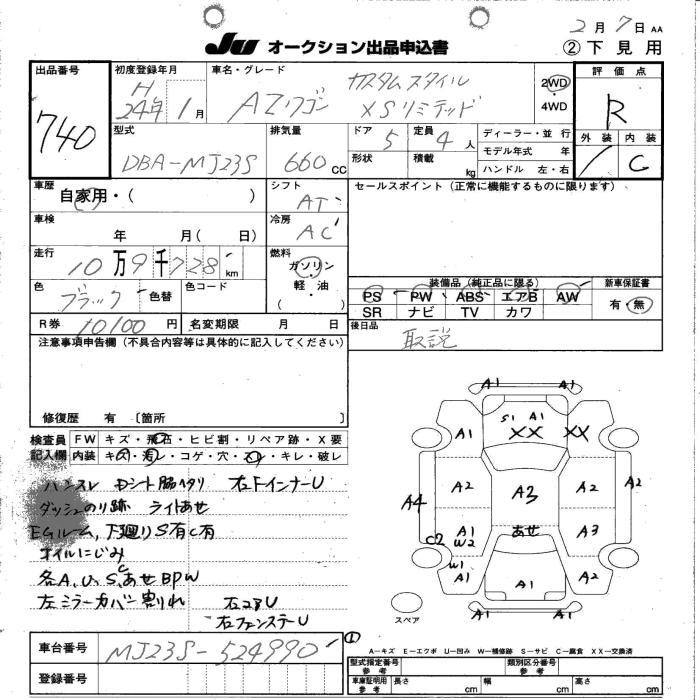 2月7日 AA
JU オークション出品申込書
② 下見用
出品番号
740
初度登録年月
H 24年 1月
車名・グレード
AZワゴン
カスタムスタイル
XSリミテッド
2WD
・4WD
評価点
R
外装 内装
C
型式
DBA-MJ23S
排気量
660 CC
ドア 5
定員 4 人
形状
積載 kg
ディーラー・並行
モデル年式 年
ハンドル 左・右
車歴
自家用・( )
シフト
AT
セールスポイント（正常に機能するものに限ります）
車検
年 月( 日)
冷房
AC
走行
10万9千728 km
燃料
ガソリン・
軽・油・
( )
色
ブラック
色替
色コード
装備品（純正品に限る）
PS PW ABS エアB AW
SR ナビ TV カワ
新車保証書
有・無
R券 10100 円
名変期限 月 日
後日品
取説
注意事項申告欄（不具合内容等は具体的に記入してください）
修復歴 有 〔箇所 〕
検査員
記入欄
FW キズ・飛石・ヒビ割・リペア跡・X要
内装 キズ・汚レ・コゲ・穴・スレ・キレ・破レ
ハンスレ
右FインナーU
ダッシュのり跡 ライトあせ
EGルーム、下廻りS有C有
オイルにじみ
各A、U、S、C あせ BPW
左ミラーカバー割れ
右コアU
右フェンステーU
A1 A1
S1 A1
A1 XX XX A1
A4 A2 A3 A2 A2
C2 A1 W2 あせ A3
W1 A1 A1 A2
A1 A1
スペア
車台番号
MJ23S-524990
登録番号
①
A－キズ E－エクボ U－凹み W－補修跡 S－サビ C－腐食 XX－交換済
型式指定番号
参考
類別区分番号
参考
車庫証明用
参考
長さ cm 幅 cm 高さ cm